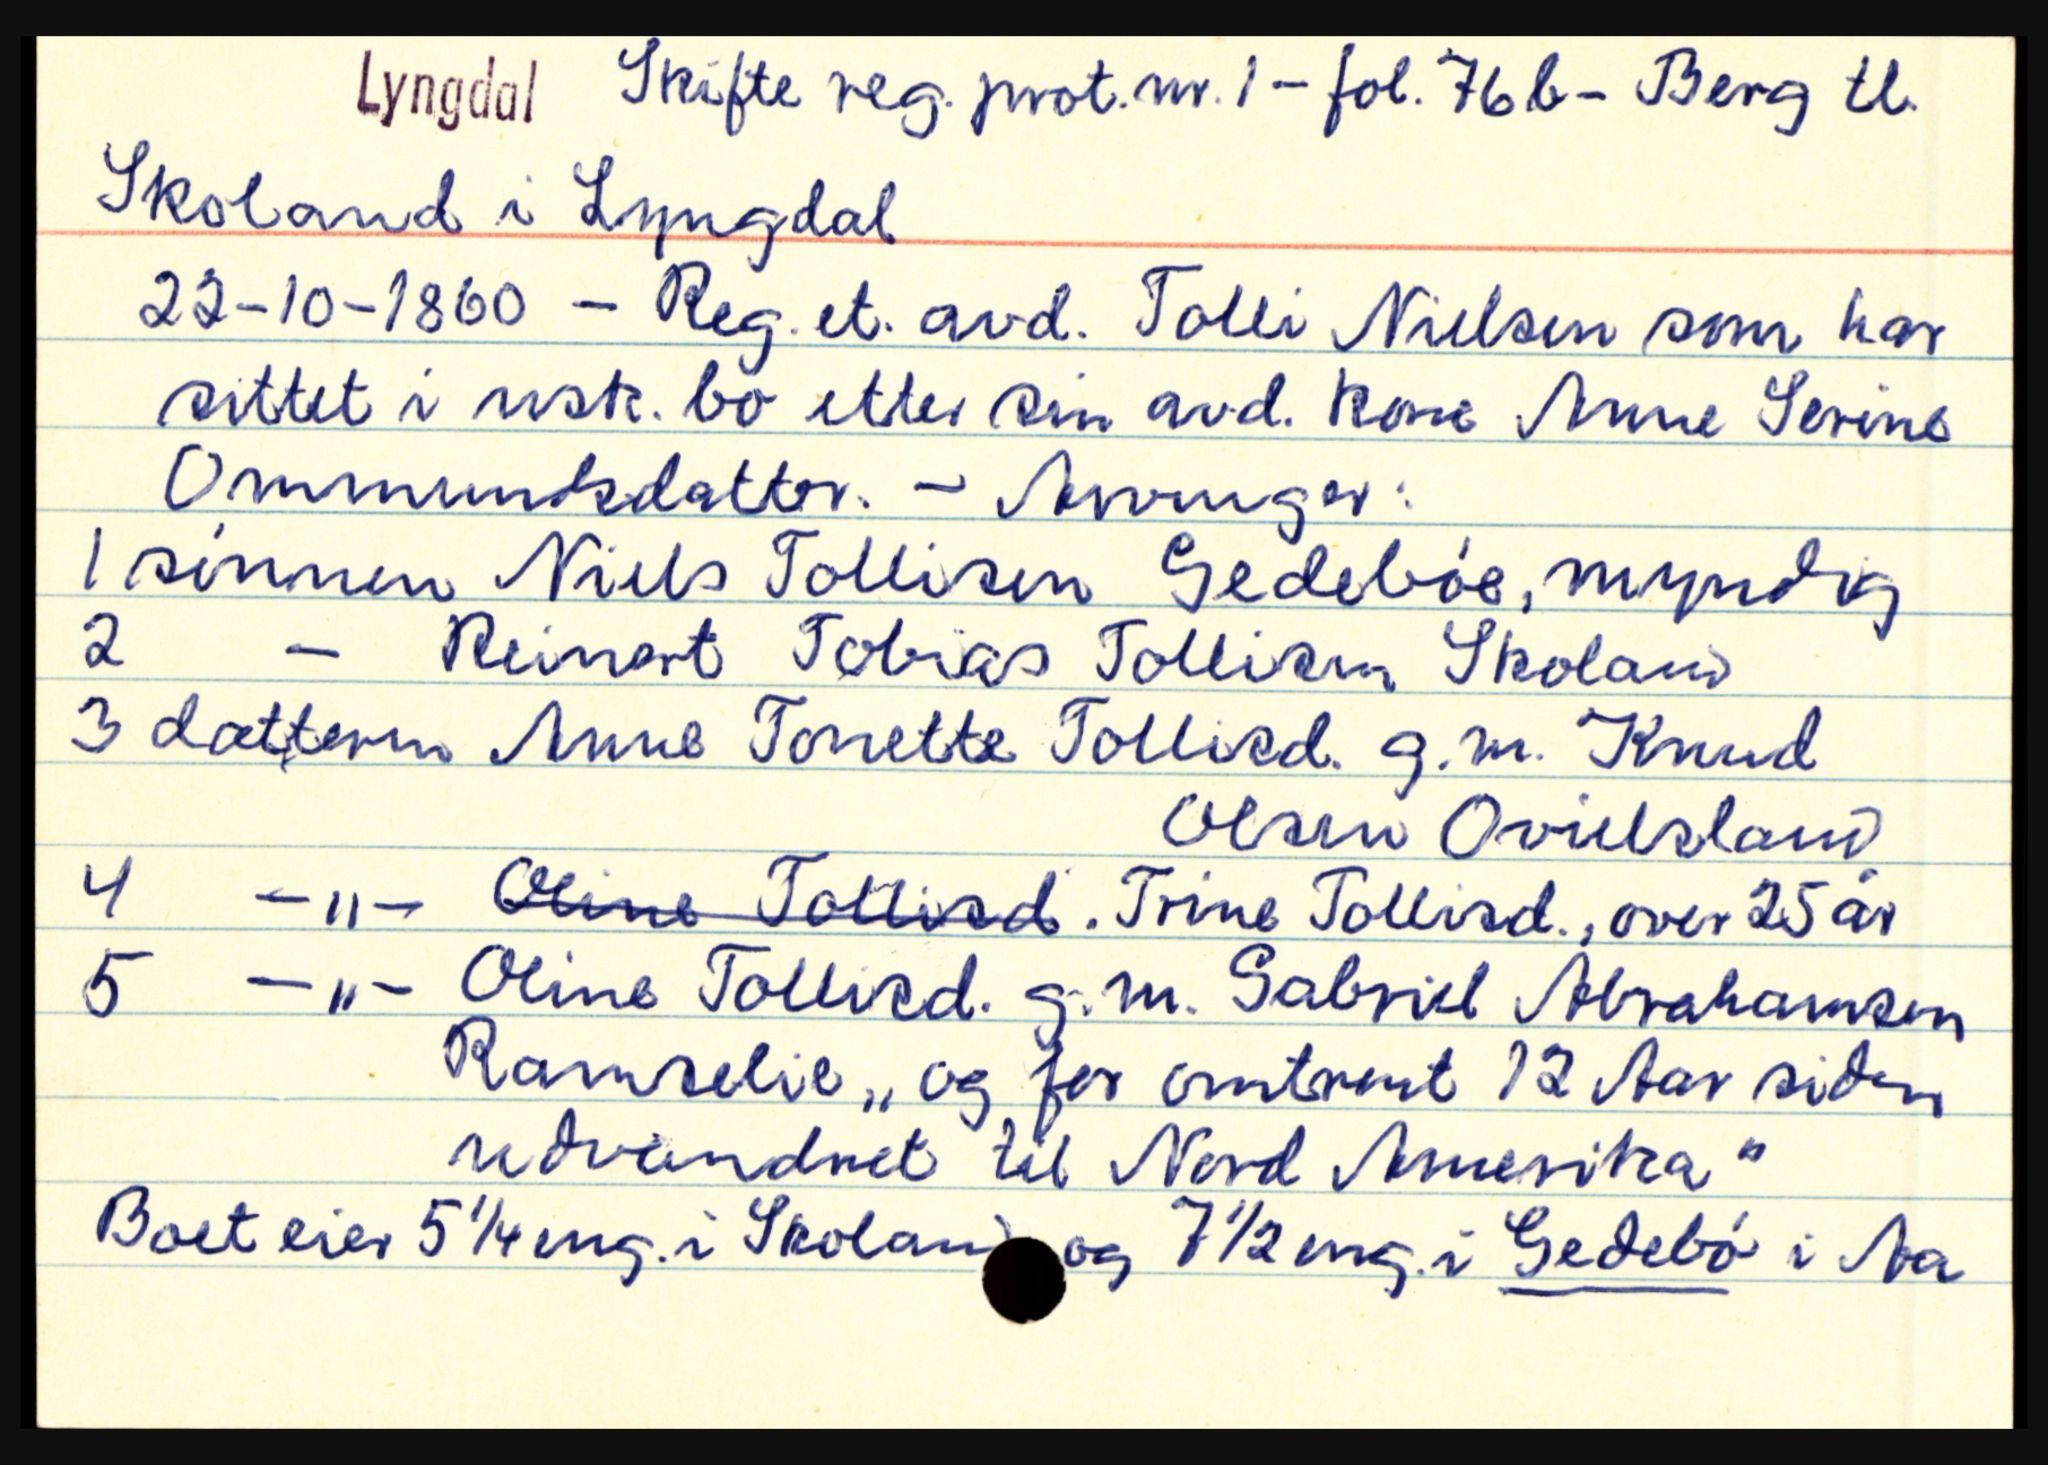 Lyngdal Skifte reg. prot. nr. 1 - fol. 76b - Berg tl.
Skoland i Lyngdal
22-10-1860 - Reg. et. avd. Tolli Nielsen som har
sittet i usk. bo etter sin avd. kone Anne Serine
Ommundsdatter. - Arvinger:
1 sønnen Niels Tollisen Gedebøe, myndig
2 - Reinert Tobias Tollisen Skoland
3 datteren Anne Tonette Tollisd. g.m. Knud
Olsen Ovielsland
4 -"- Oline Tollisd. Trine Tollisd., over 25 år
5 -"- Oline Tollisd. g.m. Gabriel Abrahamsen
Ramselie „og for omtrent 12 Aar siden
udvandret til Nord Amerika"
Boet eier 5 1/4 eng. i Skoland og 7 1/2 eng. i Gedebø i Aa